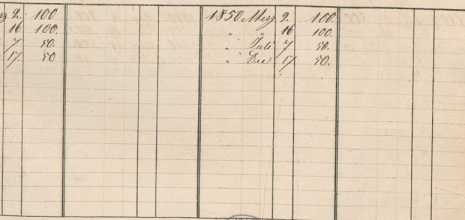 2. 100. 1850 May 2. 100.
16 100. " " 16 100.
7 50. " Juli 7 50.
17 50 " Dec 17. 50.